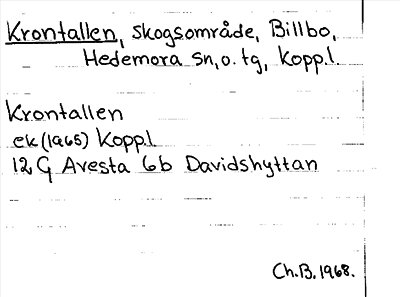 Krontallen, skogsområde, Billbo,
Hedemora sn, o. tg, Kopp.l.
Krontallen
ek (1965) Kopp.l
12 G Avesta 6b Davidshyttan
Ch.B. 1968.